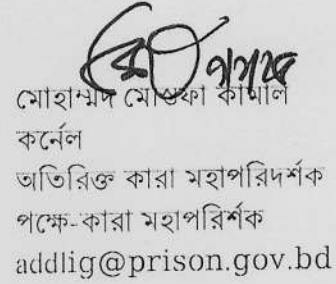 মোহাম্মদ মোস্তফা কামাল
কর্নেল
অতিরিক্ত কারা মহাপরিদর্শক
পক্ষে-কারা মহাপরির্শক
addlig@prison.gov.bd